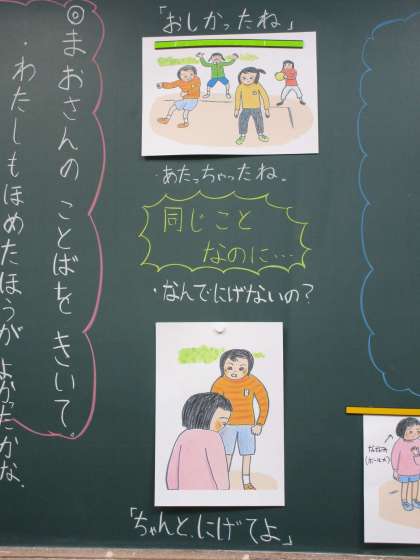 「おしかったね」
・あたっちゃったね。
同じこと
なのに…
・なんでにげないの?
「ちゃんと、にげてよ」
◎まおさんのことばをきいて。
・わたしもほめたほうがよかったかな.